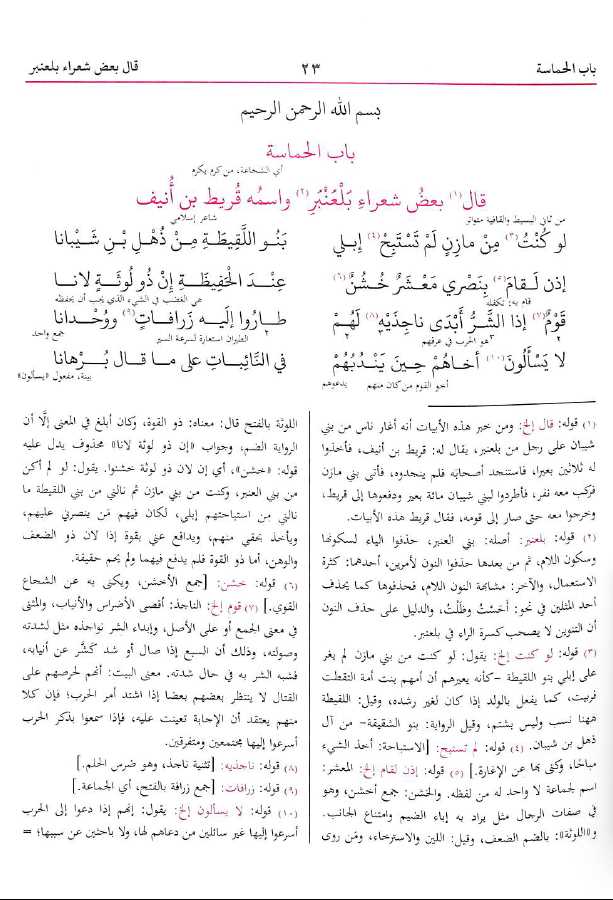 باب الحماسة ٢٣ قال بعض شعراء بلعنبر
بسم الله الرحمن الرحيم
باب الحماسة
أي الشجاعة، من كرم يكرم
قال(١) بعضُ شعراءِ بَلْعَنْبَرِ(٢) واسمُه قُريط بن أُنيف
من ثاني البسيط والقافية متواتر شاعر إسلامي
لو كنْتُ(٣) مِنْ مازِنٍ لَمْ تَسْتَبِحْ(٤) إبلي بَنُو اللَّقِيطَةِ مِنْ ذُهْلِ بْنِ شَيْبانا
إذن لَقامَ(٥) بِنَصْري مَعْشَرٌ خُشُنٌ(٦) عِنْدَ الْحَفِيظَةِ إِنْ ذُو لُوثَةٍ لانا
قام به: تكفله هي الغضب في الشيء الذي يجب أن يحفظه
قَوْمٌ(٧) إذا الشَّرُّ أَبْدَى ناجِذَيْهِ(٨) لَهُمْ طارُوا إلَيه زَرافاتٍ(٩) ووُحْدانا
هو الحرب في عرفهم الطيران استعارة لسرعة السير جمع واحد
لا يَسْألُونَ(١٠) أخاهُمْ حِينَ يَنْدُبُهُمْ في النَّائِباتِ على ما قال بُرْهانا
أخو القوم من كان منهم يدعوهم بينة، مفعول «يسألون»
(١) قوله: قال إلخ: ومن خبر هذه الأبيات أنه أغار ناس من بني
شيبان على رجل من بلعنبر، يقال له: قريط بن أنيف، فأخذوا
له ثلاثين بعيرا، فاستنجد أصحابه فلم ينجدوه، فأتى بني مازن
فركب معه نفر، فأطردوا لبني شيبان مائة بعير ودفعوها إلى قريط،
وخرجوا معه حتى صار إلى قومه، فقال قريط هذه الأبيات.
(٢) قوله: بلعنبر: أصله: بني العنبر، حذفوا الياء لسكونها
وسكون اللام، ثم من بعدها حذفوا النون لأمرين، أحدهما: كثرة
الاستعمال، والآخر: مشابهة النون اللام، فحذفوها كما يحذف
أحد المثلين في نحو: أحَسْتُ وظَلْتُ، والدليل على حذف النون
أن التنوين لا يصحب كسرة الراء في بلعنبر.
(٣) قوله: لو كنت إلخ: يقول: لو كنت من بني مازن لم يغر
على إبلي بنو اللقيطة -كأنه يعيرهم أن أمهم بنت أمة التقطت
فربيت، كما يفعل بالولد إذا كان لغير رشده، وقيل: اللقيطة
ههنا نسب وليس بشتم، وقيل الرواية: بنو الشقيقة- من آل
ذهل بن شيبان. (٤) قوله: لم تستبح: [الاستباحة: أخذ الشيء
مباحا، وكنى بها عن الإغارة.] (٥) قوله: إذن لقام إلخ: المعشر:
اسم لجماعة لا واحد له من لفظه. والخشن: جمع أخشن، وهو
في صفات الرجال مثل يراد به إباء الضيم وامتناع الجانب.
و«اللوثة»: بالضم الضعف، وقيل: اللين والاسترخاء، ومَن روى
اللوثة بالفتح قال: معناه: ذو القوة، وكان أبلغ في المعنى إلَّا أن
الرواية الضم، وجواب «إن ذو لوثة لانا» محذوف يدل عليه
قوله: «خشن»، أي إن لان ذو لوثة خشنوا. يقول: لو لم أكن
من بني العنبر، وكنت من بني مازن ثم نالني من بني اللقيطة ما
نالني من استباحتهم إبلي، لكان فيهم مَن ينصرني عليهم،
ويأخذ بحقي منهم، ويدافع عني بقوة إذا لان ذو الضعف
والوهن، أما ذو القوة فلم يدفع فيهما ولم يحم حقيقة.
(٦) قوله: خشن: [جمع الأخشن، ويكنى به عن الشجاع
القوي.] (٧) قوم إلخ: الناجذ: أقصى الأضراس والأنياب، والمثنى
في معنى الجمع أو على الأصل، وإبداء الشر نواجذه مثل لشدته
وصولته، وذلك أن السبع إذا صال أو شد كَشَّر عن أنيابه،
فشبه الشر به في حال شدته. معنى البيت: أنهم لحرصهم على
القتال لا ينتظر بعضهم بعضا إذا اشتد أمر الحرب؛ فإن كلا
منهم يعتقد أن الإجابة تعينت عليه، فإذا سمعوا بذكر الحرب
أسرعوا إليها مجتمعين ومتفرقين.
(٨) قوله: ناجذيه: [تثنية ناجذ، وهو ضرس الحلم.]
(٩) قوله: زرافات: [جمع زرافة بالفتح، أي الجماعة.]
(١٠) قوله: لا يسألون إلخ: يقول: إنهم إذا دعوا إلى الحرب
أسرعوا إليها غير سائلين من دعاهم لها، ولا باحثين عن سببها؛ =